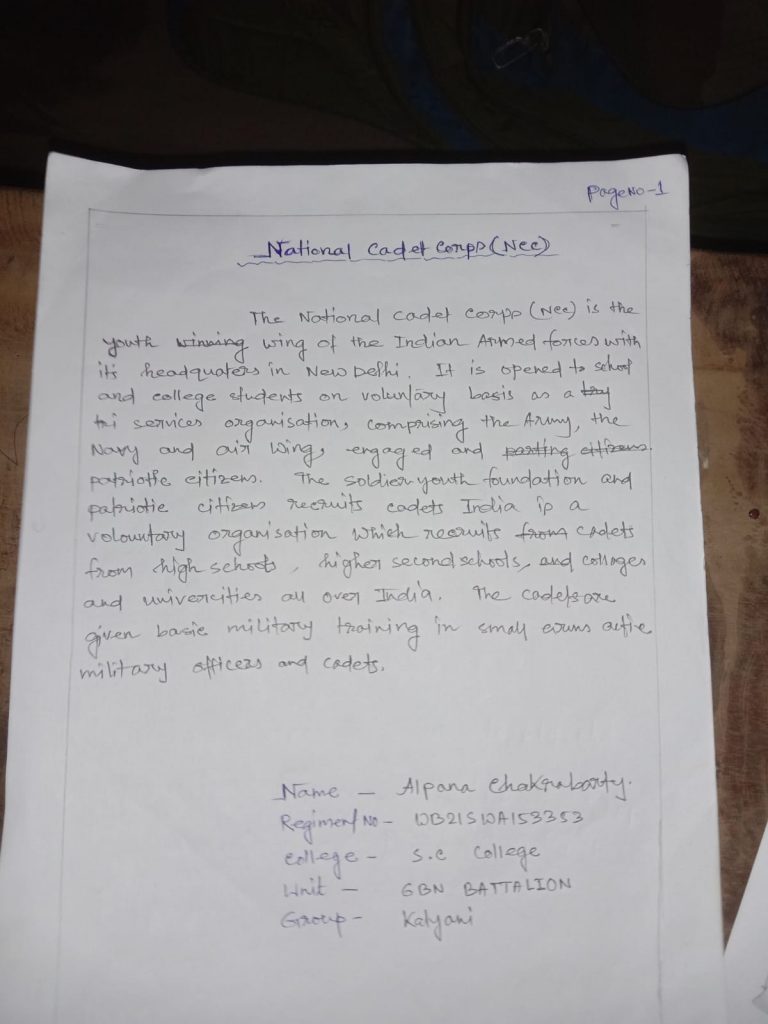 Page No-1
National Cadet Corps (Ncc)
The National cadet corps (Ncc) is the
youth winning wing of the Indian Armed forces with
its headquaters in New Delhi. It is opened to school
and college students on voluntary basis as a try
tri services organisation, comprising the Army, the
Navy and air wing, engaged and parting citizens.
patriotic citizens. The soldier youth foundation and
patriotic citizens recruits cadets India is a
volountary organisation which recruits from cadets
from high schools, higher second schools, and colleges
and univercities all over India. The cadets are
given basic military training in small
military officers and cadets.
Name - Alpana Chakrabarty.
Regiment No - WB21SWA153353
College - S.C College
Unit - 6BN BATTALION
Group - Kalyani